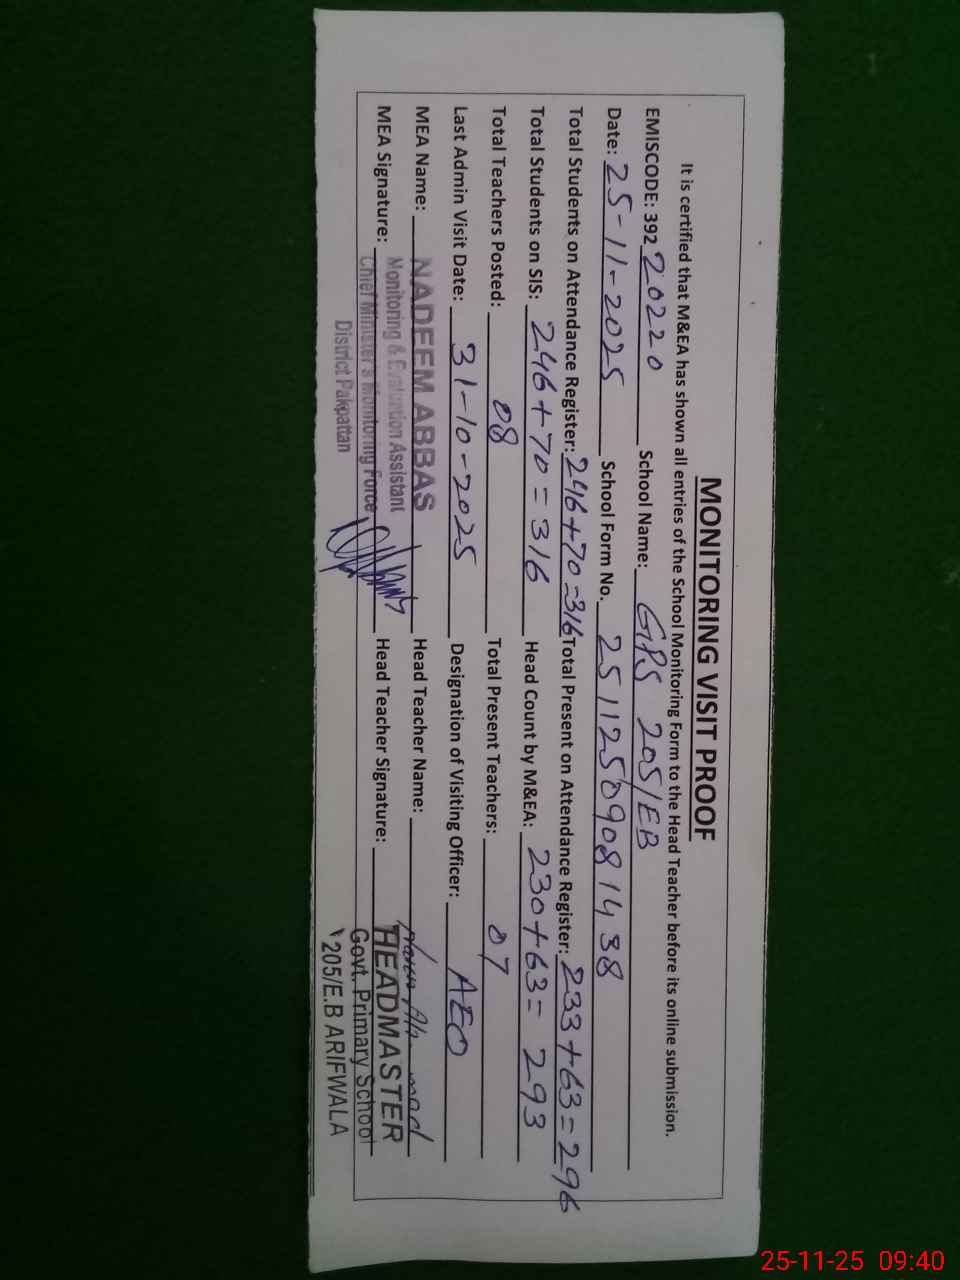 MONITORING VISIT PROOF
It is certified that M&EA has shown all entries of the School Monitoring Form to the Head Teacher before its online submission.
EMISCODE: 39220220 School Name: GPS 205/EB
Date: 25-11-2025 School Form No. 251125090814 38
Total Students on Attendance Register: 246+70=316 Total Present on Attendance Register: 233+63=296
Total Students on SIS: 246+70=316 Head Count by M&EA: 230+63=293
Total Teachers Posted: 08 Total Present Teachers: 07
Last Admin Visit Date: 31-10-2025 Designation of Visiting Officer: AEO
MEA Name: NADEEM ABBAS Head Teacher Name:
Monitoring & Evaluation Assistant
MEA Signature: Chief Minister's Monitoring Force Head Teacher Signature: HEADMASTER
District Pakpattan
Govt. Primary School
205/E.B ARIFWALA
25-11-25 09:40